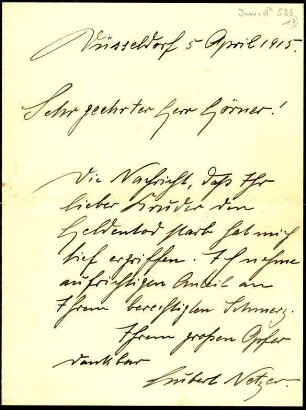 Düsseldorf 5 April 1915.
Sehr geehrter Herr Hörner!
Die Nachricht, daß Ihr
lieber Bruder den
Heldentod starb hat mich
tief ergriffen. Ich nehme
aufrichtigen Anteil an
Ihrem berechtigten Schmerz.
Ihrem großen Opfer
dankbar
Hubert Netzer.